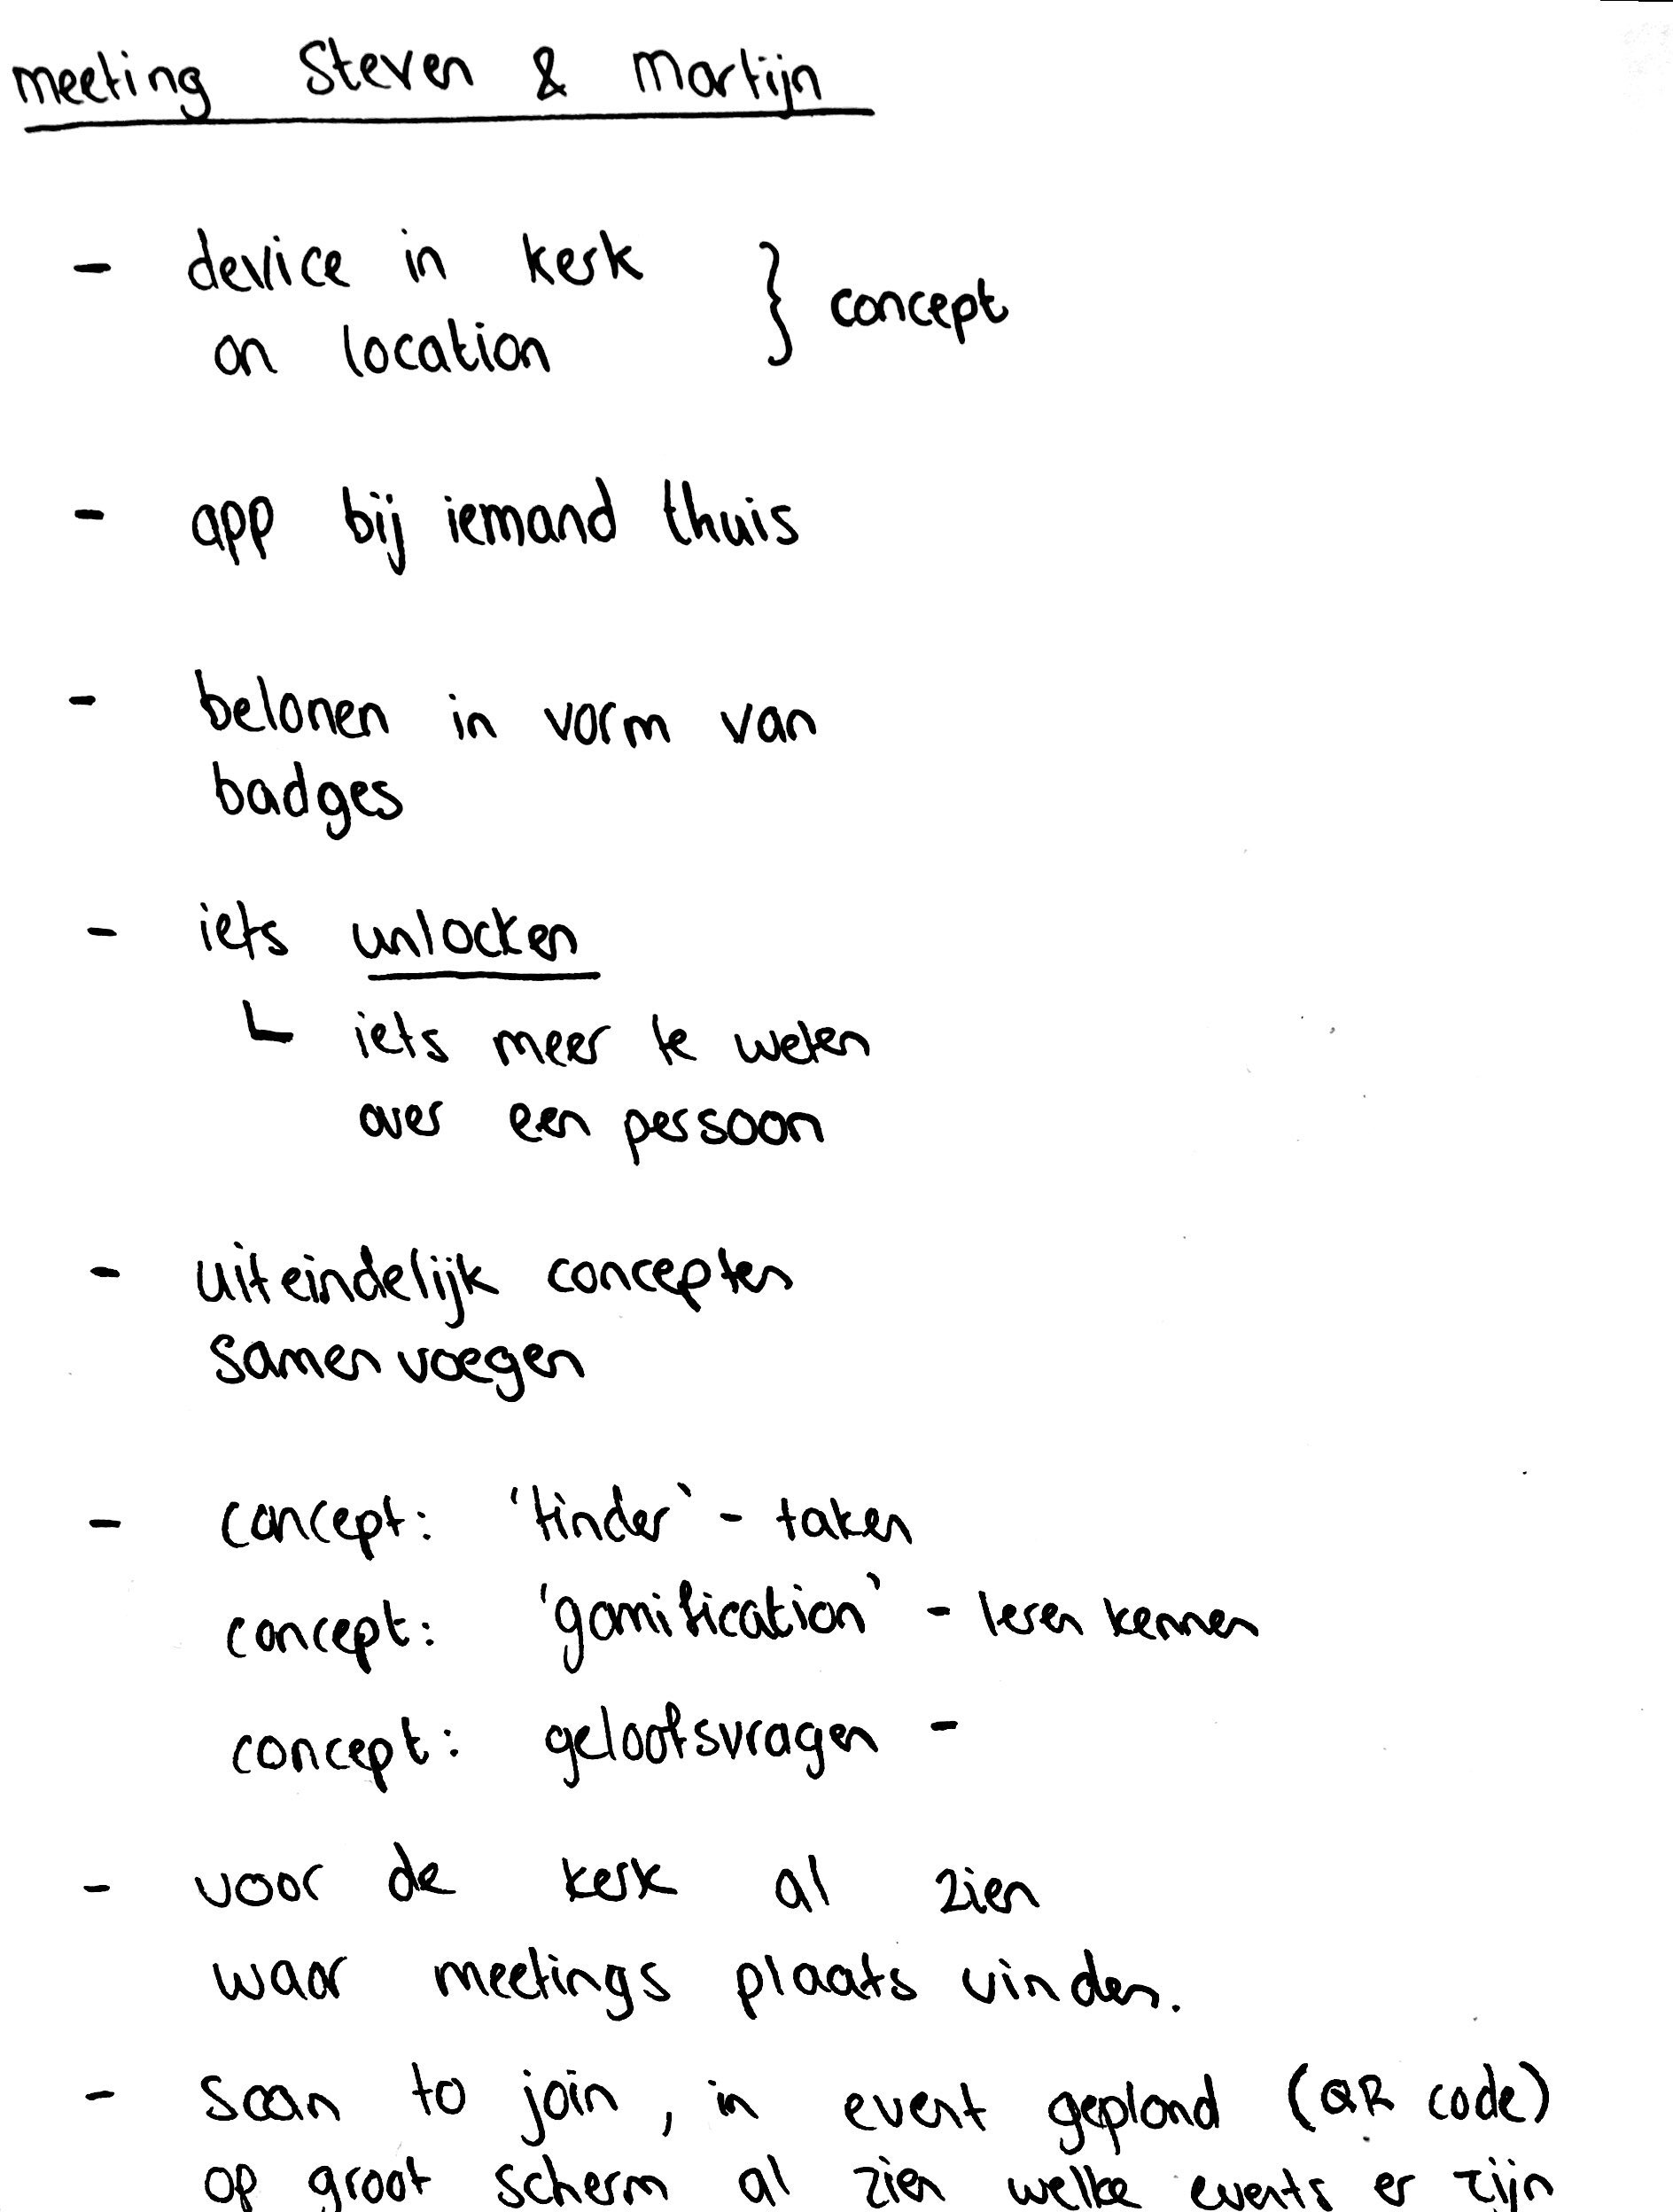 meeting Steven & Martijn
- device in kerk
on location
} concept
- app bij iemand thuis
- belonen in vorm van
badges
- iets unlocken
L iets meer te weten
over een persoon
- uiteindelijk concepten
samen voegen
- concept: 'tinder' - taken
concept: 'gamification' - leren kennen
concept: geloofsvragen -
- voor de kerk al zien
waar meetings plaats vinden.
- Scan to join, in event gepland (QR code)
op groot scherm al zien welke events er zijn